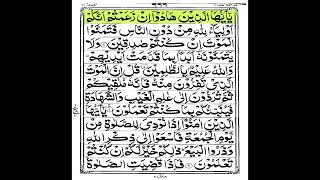 يٰۤاَيُّهَا الَّذِيْنَ هَادُوْۤا اِنْ زَعَمْتُمْ اَنَّكُمْ
اَوْلِيَآءُ لِلّٰهِ مِنْ دُوْنِ النَّاسِ فَتَمَنَّوُا
الْمَوْتَ اِنْ كُنْتُمْ صٰدِقِيْنَ وَلَا
يَتَمَنَّوْنَهٗۤ اَبَدًۢا بِمَا قَدَّمَتْ اَيْدِيْهِمْ
وَاللّٰهُ عَلِيْمٌۢ بِالظّٰلِمِيْنَ قُلْ اِنَّ الْمَوْتَ
الَّذِيْ تَفِرُّوْنَ مِنْهُ فَاِنَّهٗ مُلٰقِيْكُمْ
ثُمَّ تُرَدُّوْنَ اِلٰى عٰلِمِ الْغَيْبِ وَالشَّهَادَةِ
فَيُنَبِّئُكُمْ بِمَا كُنْتُمْ تَعْمَلُوْنَ يٰۤاَيُّهَا
الَّذِيْنَ اٰمَنُوْۤا اِذَا نُوْدِيَ لِلصَّلٰوةِ مِنْ
يَّوْمِ الْجُمُعَةِ فَاسْعَوْا اِلٰى ذِكْرِ اللّٰهِ
وَذَرُوا الْبَيْعَ ذٰلِكُمْ خَيْرٌ لَّكُمْ اِنْ كُنْتُمْ
تَعْلَمُوْنَ فَاِذَا قُضِيَتِ الصَّلٰوةُ